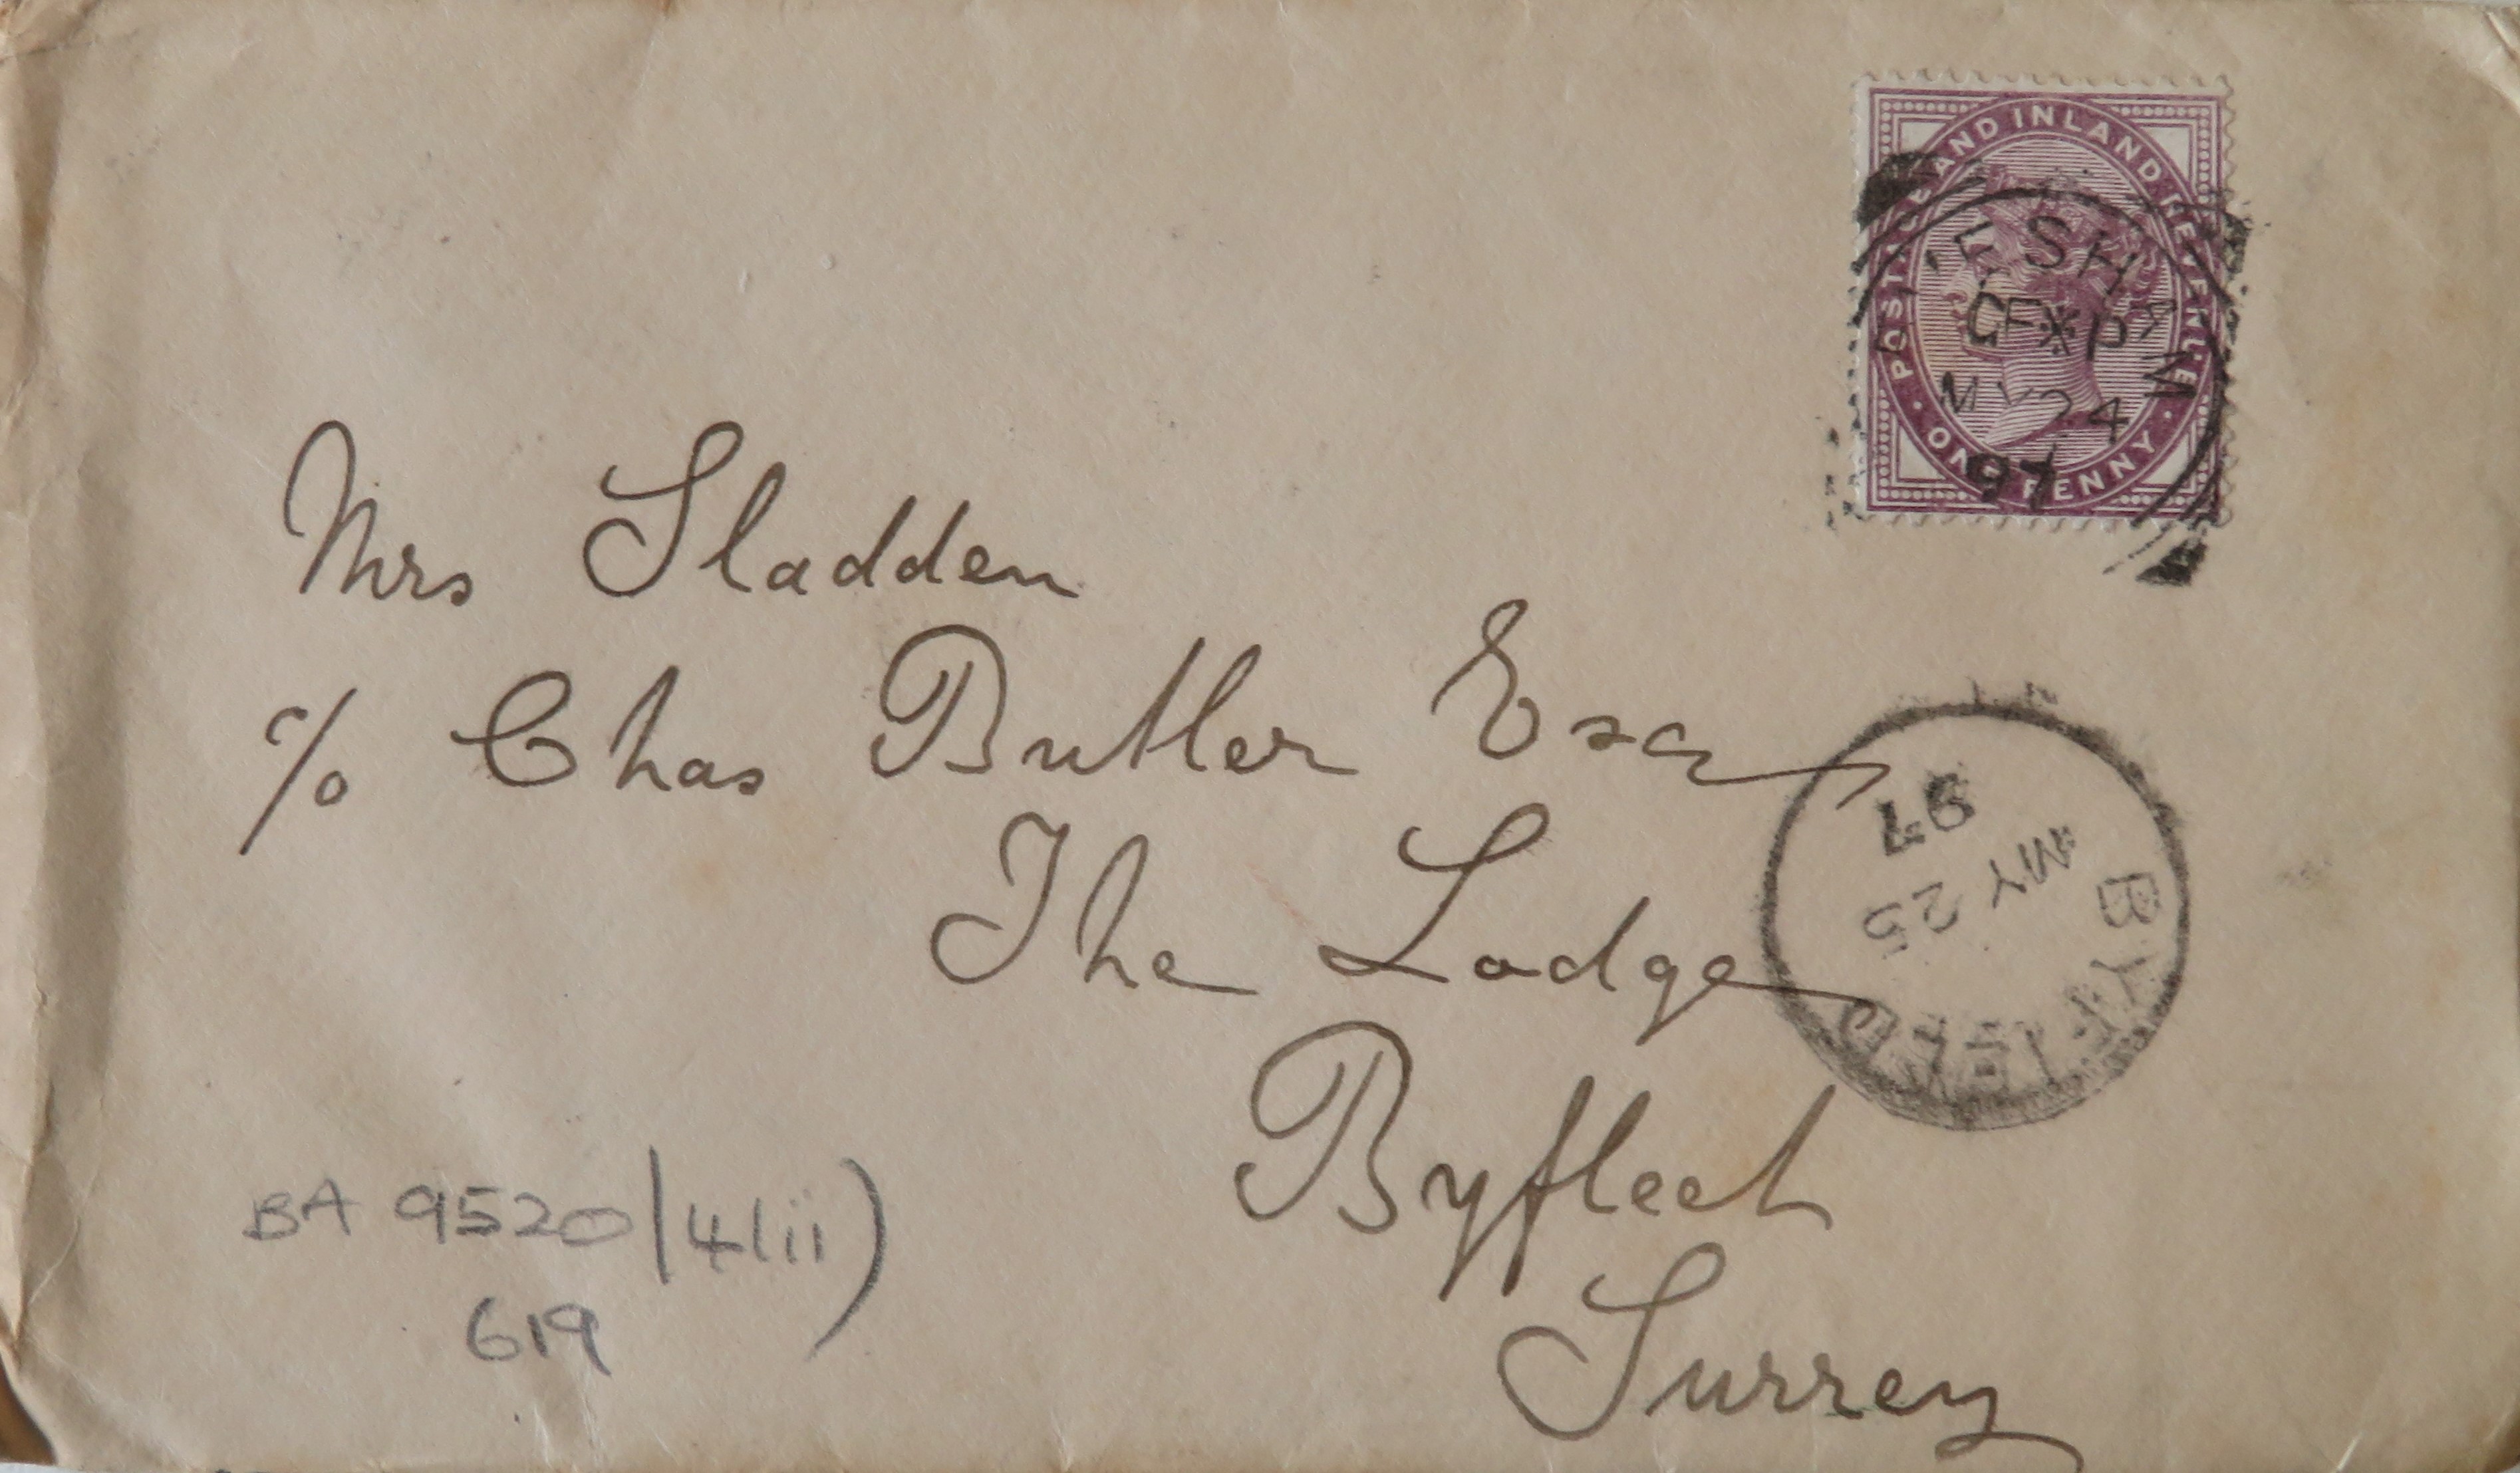 POSTAGE AND INLAND REVENUE
ESHAM
CF*P
MY 24
97
ONE PENNY
Mrs Sladden
c/o Chas Butler Esq
The Lodge
Byfleet
Surrey
BYFLEET
MY 25
97
BA 9520/4(ii)
619